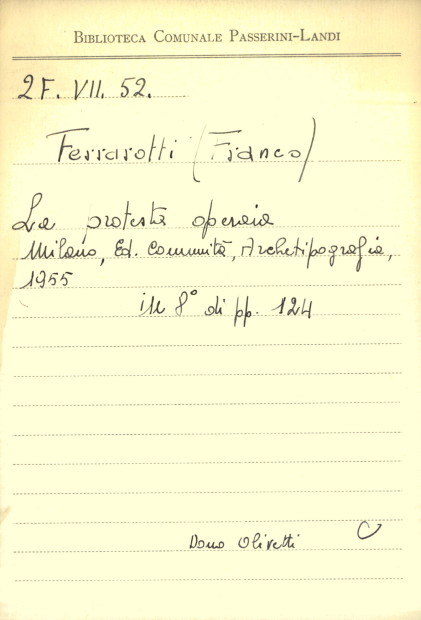 BIBLIOTECA COMUNALE PASSERINI-LANDI
2F. VII. 52.
Ferrarotti (Franco)
La protesta operaia
Milano, Ed. Comunità, Archetipografia,
1955
in 8° di pp. 124
Dono Olivetti
C